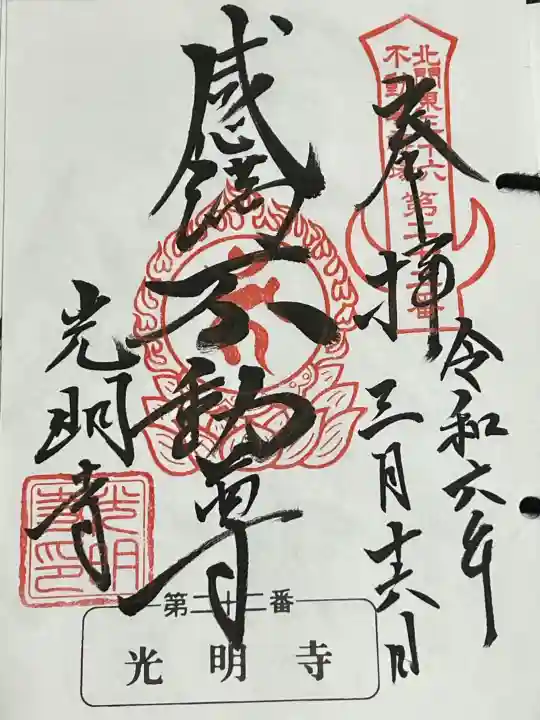 北關東三十六
不動尊霊場
第二十二番
奉拝
令和六年
三月十六日
感満不動尊
光明寺
光明
寺印
第二十二番
光明寺